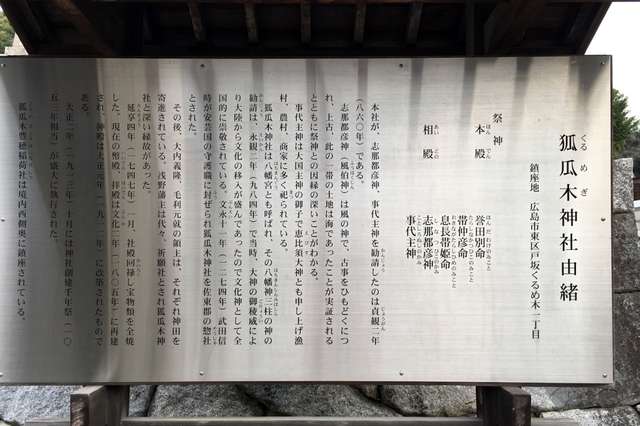 狐瓜木神社由緒
くるめぎ
鎮座地　広島市東区戸坂くるめ木一丁目
祭神
本殿　誉田別命
帯中彦命
息長帯姫命
相殿　志那都彦神
事代主神
本社が、志那都彦神、事代主神を勧請したのは貞観二年
（八六〇年）である。
志那都彦神（風伯神）は風の神で、古事をひもどくにつ
れ、上古、此の一帯の土地は海であったことが実証される
とともに祭神との因縁の深いことがわかる。
事代主神は大国主神の御子で恵比須大神とも申し上げ漁
村、農村、商家に多く祀られている。
狐瓜木神社は八幡宮とも呼ばれ、その八幡神三柱の神の
勧請は、永観二年（九八四年）で当時、大神の御稜威によ
り大陸から文化の移入が盛んであったので文化神として全
国的に崇敬されている。文永十一年（一二七四年）武田信
時が安芸国の守護職に封ぜられ狐瓜木神社を佐東郡の惣社
とされた。
その後、大内義隆、毛利元就の領主は、それぞれ神田を
寄進されている。浅野藩主は代々、祈願社とされ狐瓜木神
社と深い縁故があった。
延享四年（一七四七年）一月、社殿回禄し宝物類を全焼
した。現在の幣殿、拝殿は文化二年（一八〇五年）に再建
され、神殿は大正元年（一九一二年）に改築されたもので
ある。
大正二年（一九一三年）十月には神社創建千年祭（一〇
五二年相当）が盛大に執行された。
狐瓜木豊穂稲荷社は境内西側奥に鎮座されている。